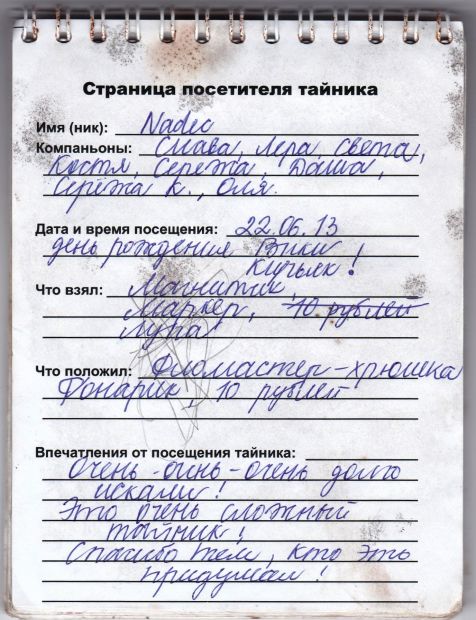 Страница посетителя тайника
Имя (ник): Nadeo
Компаньоны: Слава, Лера, Света,
Костя, Сережа, Даша,
Сережа К., Оля.
Дата и время посещения: 22.06.13
день рождения Вики
Кичьяк!
Что взял: Магнитик,
Маркер, 10 рублей
Лупа
Что положил: Фломастер-хрюшка
Фонарик, 10 рублей
Впечатления от посещения тайника:
Очень-очень-очень долго
искали!
Это очень сложный
тайник!
Спасибо тем, кто это
придумал!